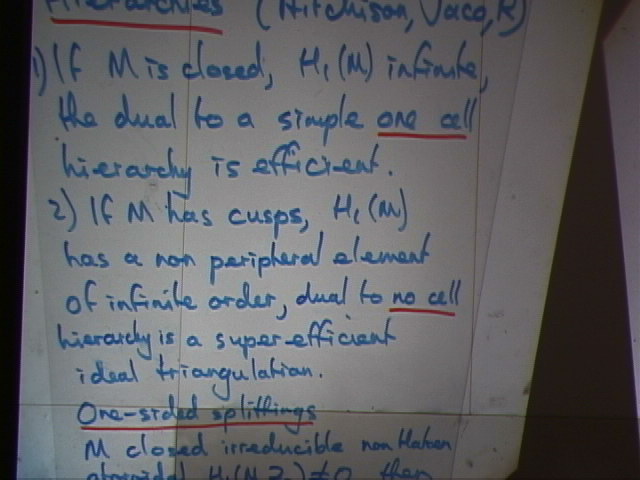 Hierarchies (Hitchison, Jaco, R)
1) If M is closed, H₁(M) infinite,
the dual to a simple one cell
hierarchy is efficient.
2) If M has cusps, H₁(M)
has a non peripheral element
of infinite order, dual to no cell
hierarchy is a super-efficient
ideal triangulation.
One-sided splittings
M closed irreducible non Haken
atoroidal H₁(M, Z₂) ≠ 0, then